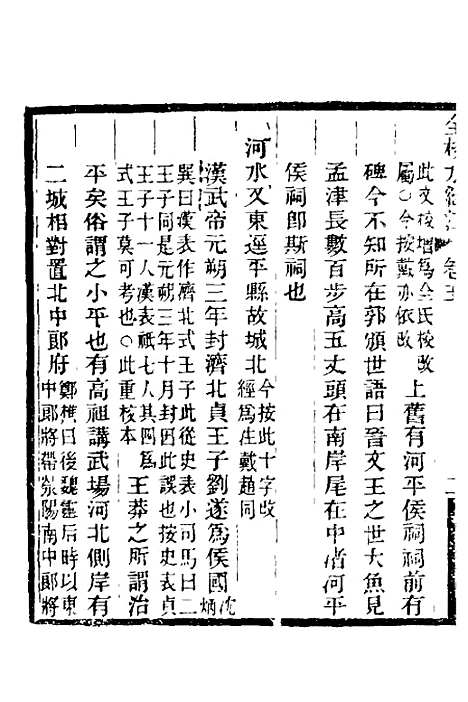 全校水經注 卷五
此文校增爲全氏校改
屬○今按戴亦依改
上舊有河平侯祠祠前有
碑今不知所在郭頒世語曰晉文王之世大魚見
孟津長數百步高五丈頭在南岸尾在中渚河平
侯祠卽斯祠也
河水又東逕平縣故城北
今按此十字改
經爲注戴趙同
漢武帝元朔三年封濟北貞王子劉遂爲侯國
沈炳
巽曰漢表作濟北式王子此從史表小司馬曰二
王子同是元朔三年十月封因此誤也按史表貞
王子十一人漢表祇七人其四爲
式王子莫可考也○此重核本
王莽之所謂治
平矣俗謂之小平也有高祖講武場河北側岸有
二城相對置北中郎府
鄭樵曰後魏靈后時以東
中郎將帶滎陽南中郎將